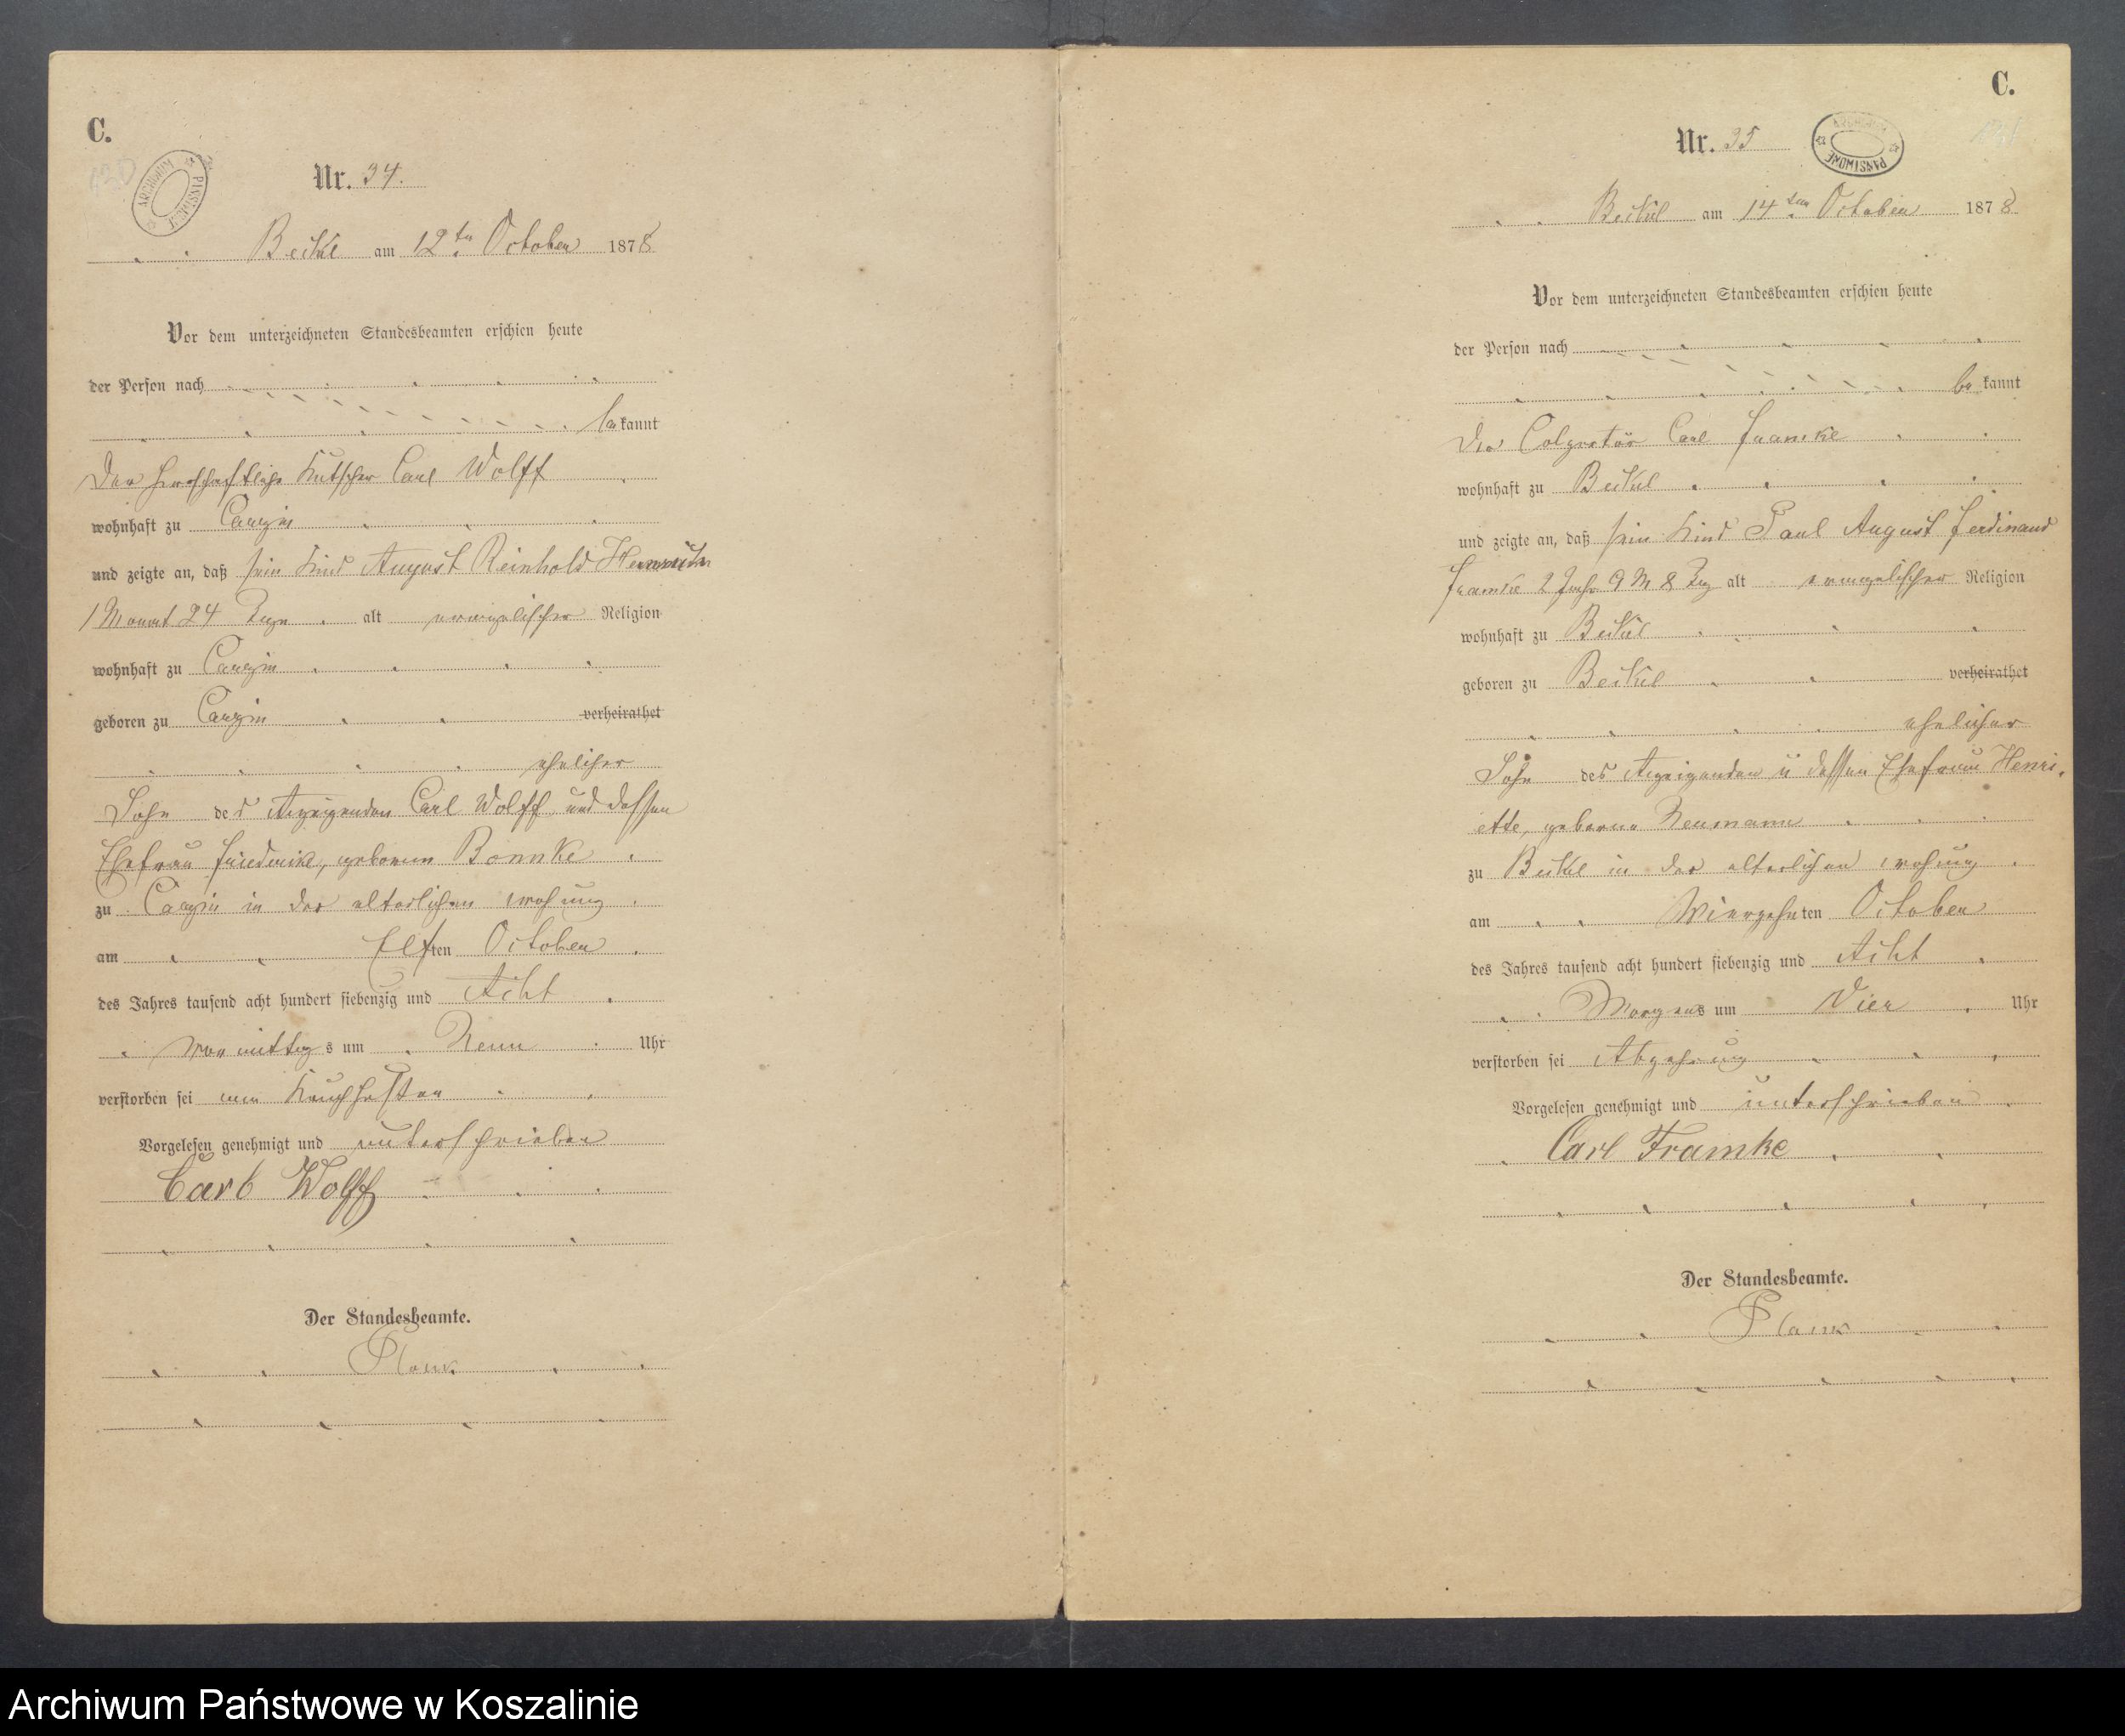 C.
ARCHIWUM PAŃSTWOWE
Nr. 34.
Beckel am 12ten October 1878
Vor dem unterzeichneten Standesbeamten erschien heute
der Person nach
bekannt
Der herrschaftliche Kutscher Carl Wolff
wohnhaft zu Carzin
und zeigte an, daß sein Kind August Reinhold Hermann
1 Monat 24 Tage alt evangelischer Religion
wohnhaft zu Carzin
geboren zu Carzin verheirathet
ehelicher
Sohn des Anzeigenden Carl Wolff und dessen
Ehefrau Friederike, geborenen Bonnke
zu Carzin in der elterlichen Wohung
am Elften October
des Jahres tausend acht hundert siebenzig und Acht
Vormittags um Neun Uhr
verstorben sei am Keuchhusten
Vorgelesen genehmigt und unterschrieben
Carl Wolff
Der Standesbeamte.
Plank
C.
Nr. 35
ARCHIWUM PAŃSTWOWE
Beckel am 14ten October 1878
Vor dem unterzeichneten Standesbeamten erschien heute
der Person nach
bekannt
Der Carl Framke
wohnhaft zu Beckel
und zeigte an, daß sein Kind Paul August Ferdinand
Framke 2 Jahr 9 M 8 Tag alt evangelischer Religion
wohnhaft zu Beckel
geboren zu Beckel verheirathet
ehelicher
Sohn des Anzeigenden u dessen Ehefrau Henri-
ette, geborene Neumann
zu Beckel in der elterlichen Wohung
am Vierzehnten October
des Jahres tausend acht hundert siebenzig und Acht
Morgens um Vier Uhr
verstorben sei Abzehrung
Vorgelesen genehmigt und unterschrieben
Carl Framke
Der Standesbeamte.
Plank
Archiwum Państwowe w Koszalinie